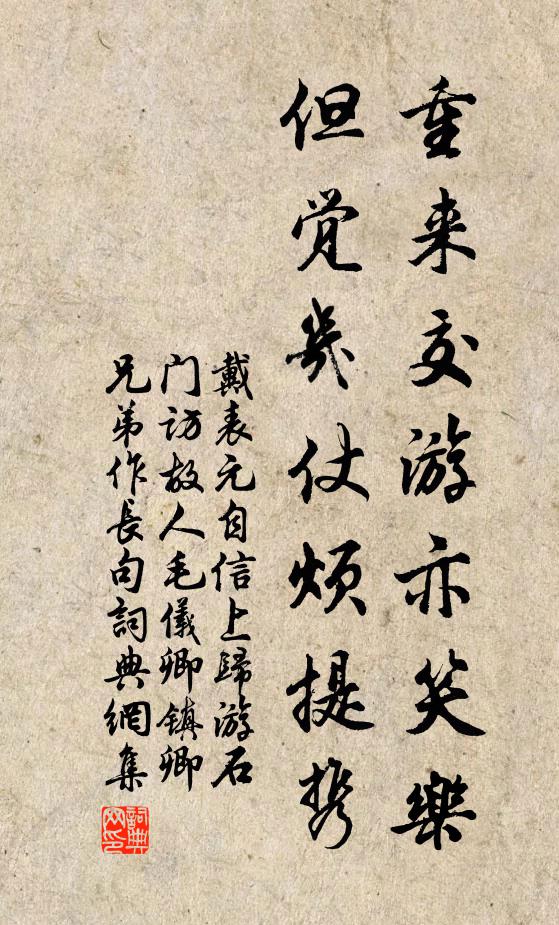 重来交游亦笑樂
但觉几仗烦提携
戴表元自信上歸游石
门访故人毛儀卿镇卿
兄弟作長句詞典網集
詞典网印